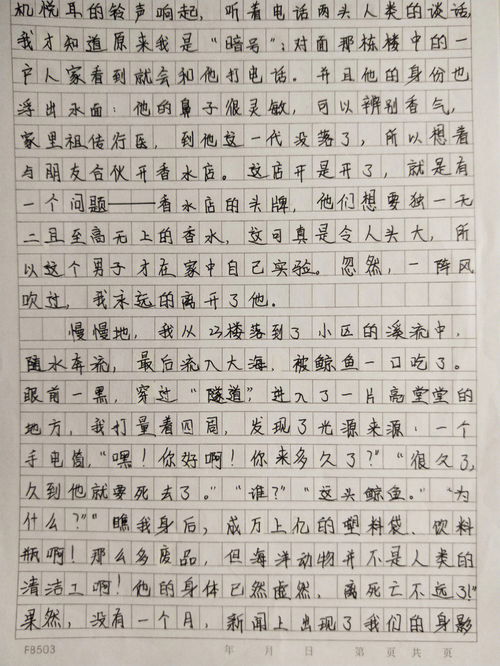 机悦耳的铃声响起，听着电话两头人类的谈话，
我才知道原来我是“暗号”；对面那栋楼中的一
户人家看到就会和他打电话。并且他的身份也
浮出水面：他的鼻子很灵敏，可以辨别香气，
家里祖传行医，到他这一代没落了，所以想着
与朋友合伙开香水店。这店开是开了，就是有
一个问题——香水店的头牌，他们想要独一无
二且至高无上的香水，这可真是令人头大，所
以这个男子才在家中自己实验。忽然，一阵风
吹过，我永远的离开了他。
慢慢地，我从23楼落到了小区的溪流中，
随水奔流，最后流入大海，被鲸鱼一口吃了。
眼前一黑，穿过“隧道”，进入了一片亮堂堂的
地方，我打量着四周，发现了光源来源：一个
手电筒，“嘿！你好啊！你来多久了？”“很久了，
久到他就要死去了。”“谁？”“这头鲸鱼。”“为
什么？”“瞧我身后，成万上亿的塑料袋、饮料
瓶啊！那么多废品，但海洋动物并不是人类的
清洁工啊！他的身体已然虚然，离死亡不远了！”
果然，没有一个月，新闻上出现了我们的身影
F8503 年 月 日 第 页 共 页